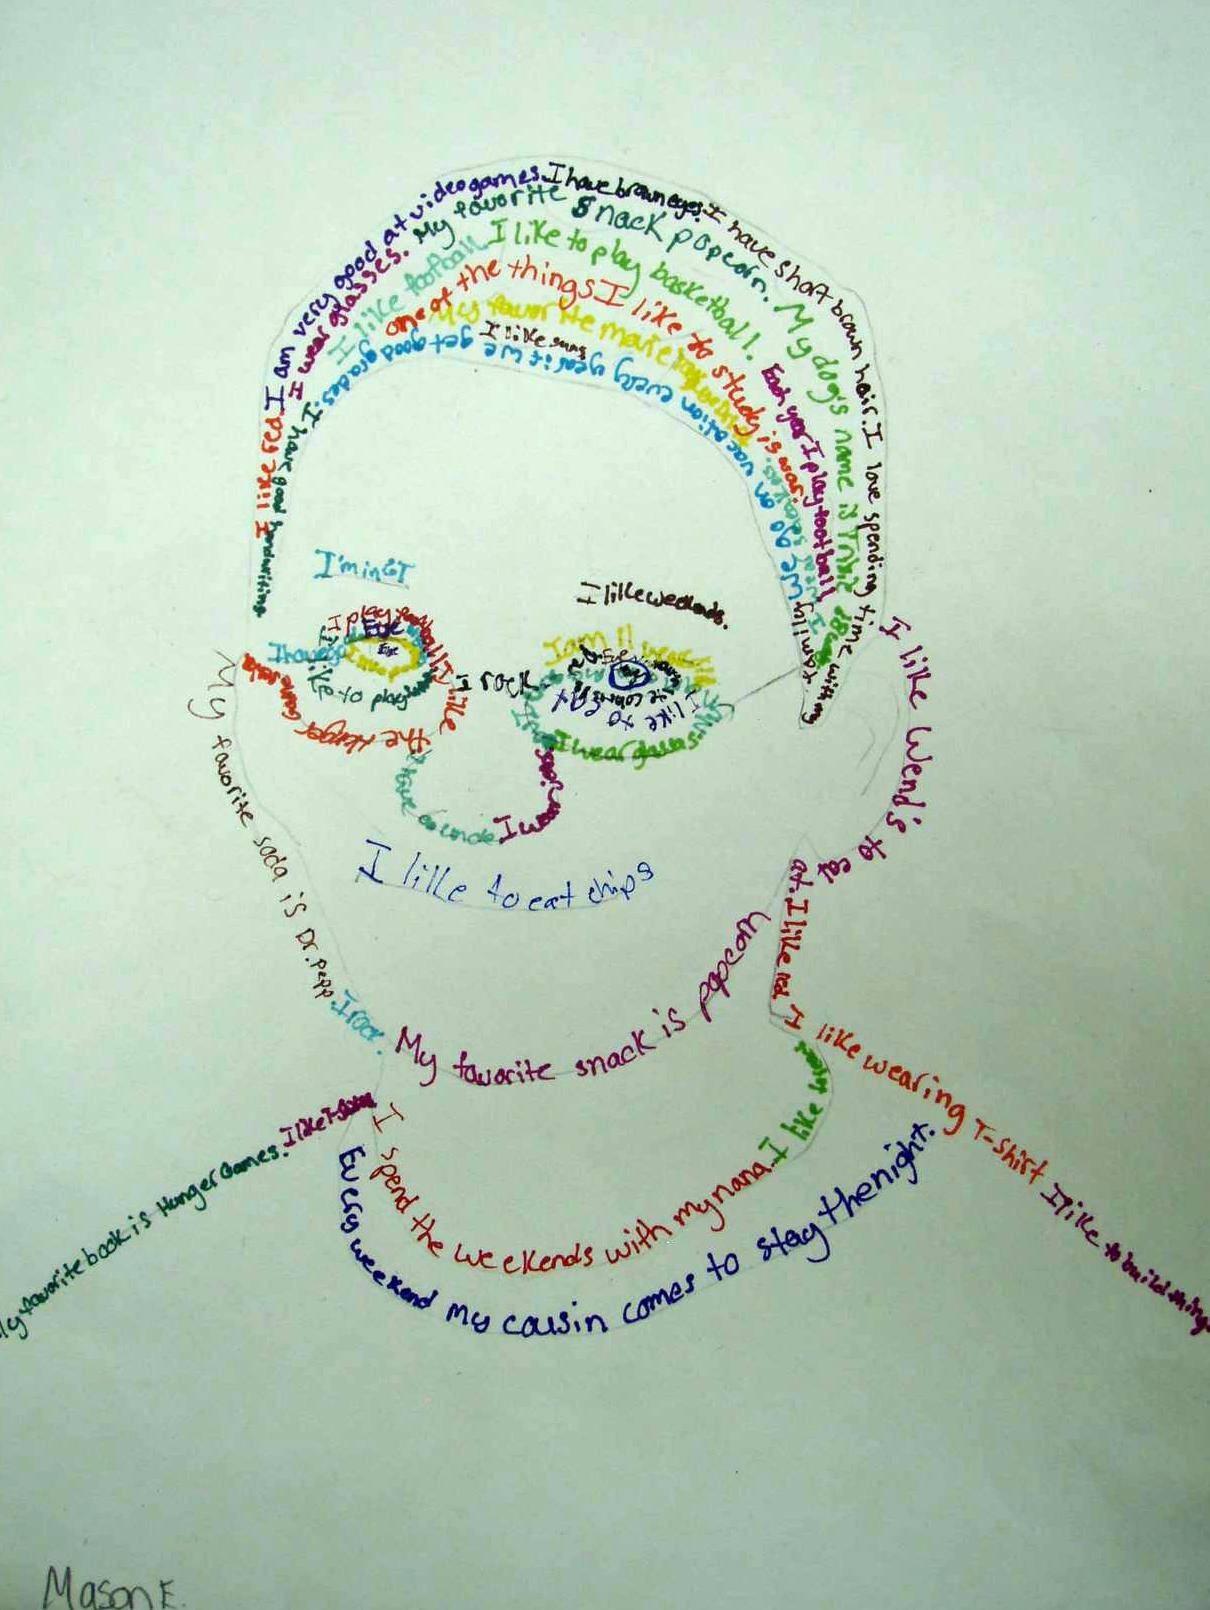 I like red I am very good at videogames. I have brown eyes. I have short brown hair. I love spending time with my
I wear glasses. My favorite snack popcorn. My dog's name is
I like football. I like to play basketball. Each year I play football
one of the things I like to study is war.
My favorite movie
I like guns
family. we go on vacation every year if we get good grades. I have good handwriting.
I'm in GT
I like weekends.
I play football I like
Eye
Eye
I like to play
The Hunger Games
I rock
I am 11
I like to eat
I wear glasses.
I have an uncle
I like to eat chips
My favorite soda is Dr. Pepp. I rock.
My favorite snack is popcorn
I like Wend's to eat at. I like red
I like wearing T-shirt I like to build things
My favorite book is Hunger Games. I like T-shirts
I spend the weekends with my nana. I like
Every weekend my cousin comes to stay the night.
Mason E.